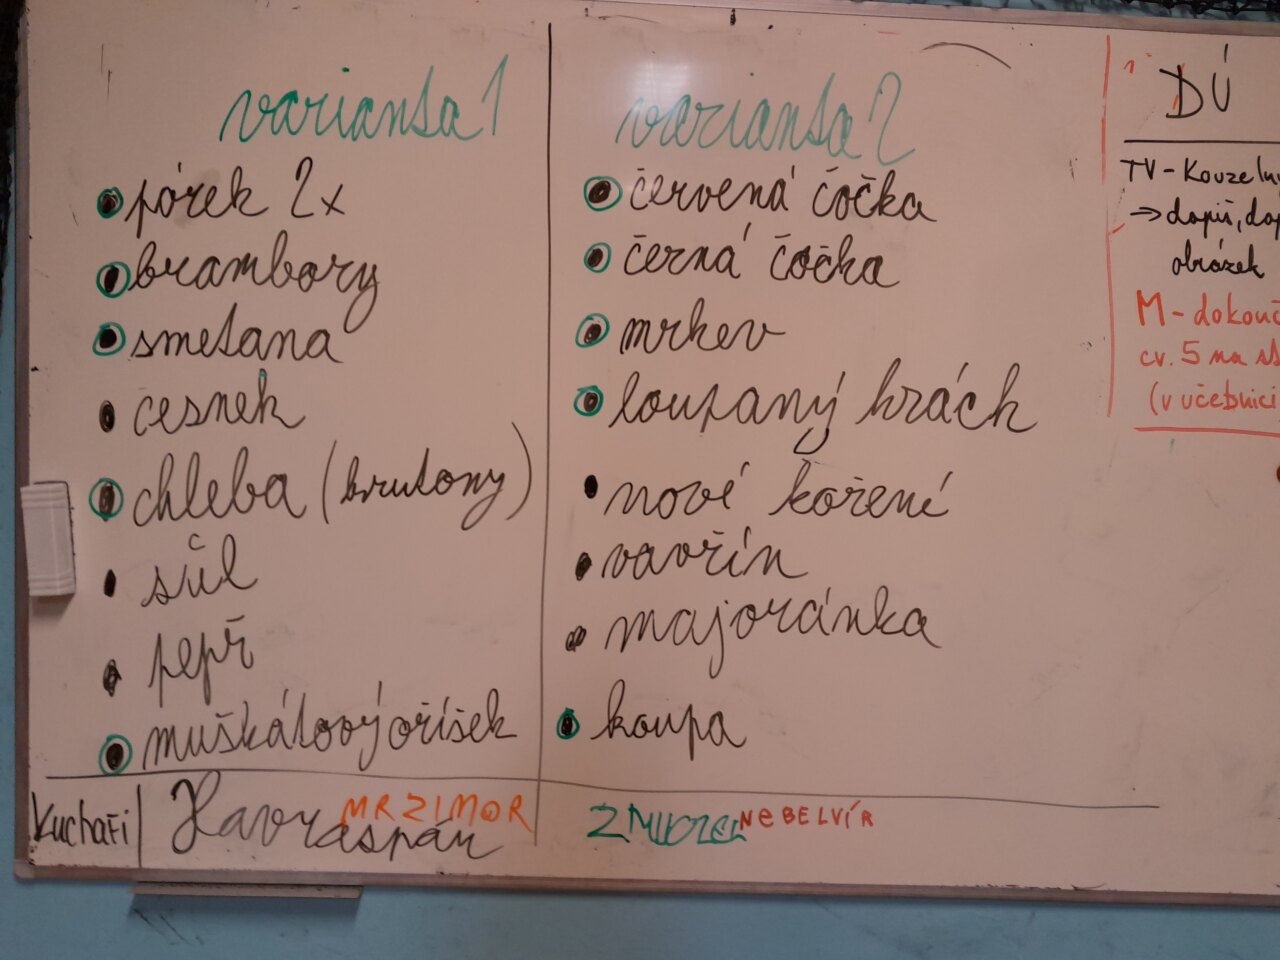 varianta 1
pórek 2x
brambory
smetana
česnek
chleba (krutony)
sůl
pepř
muškátový oříšek
Kuchaři
Havraspár
MRZIMOR
varianta 2
červená čočka
černá čočka
mrkev
loupaný hrách
nové koření
vavřín
majoránka
koupa
ZMIJOZEL
NEBELVÍR
DÚ
TV - Kouzeln
⇒ dopiš, dop
obrázek
M - dokonč
cv. 5 na st
(v učebnici